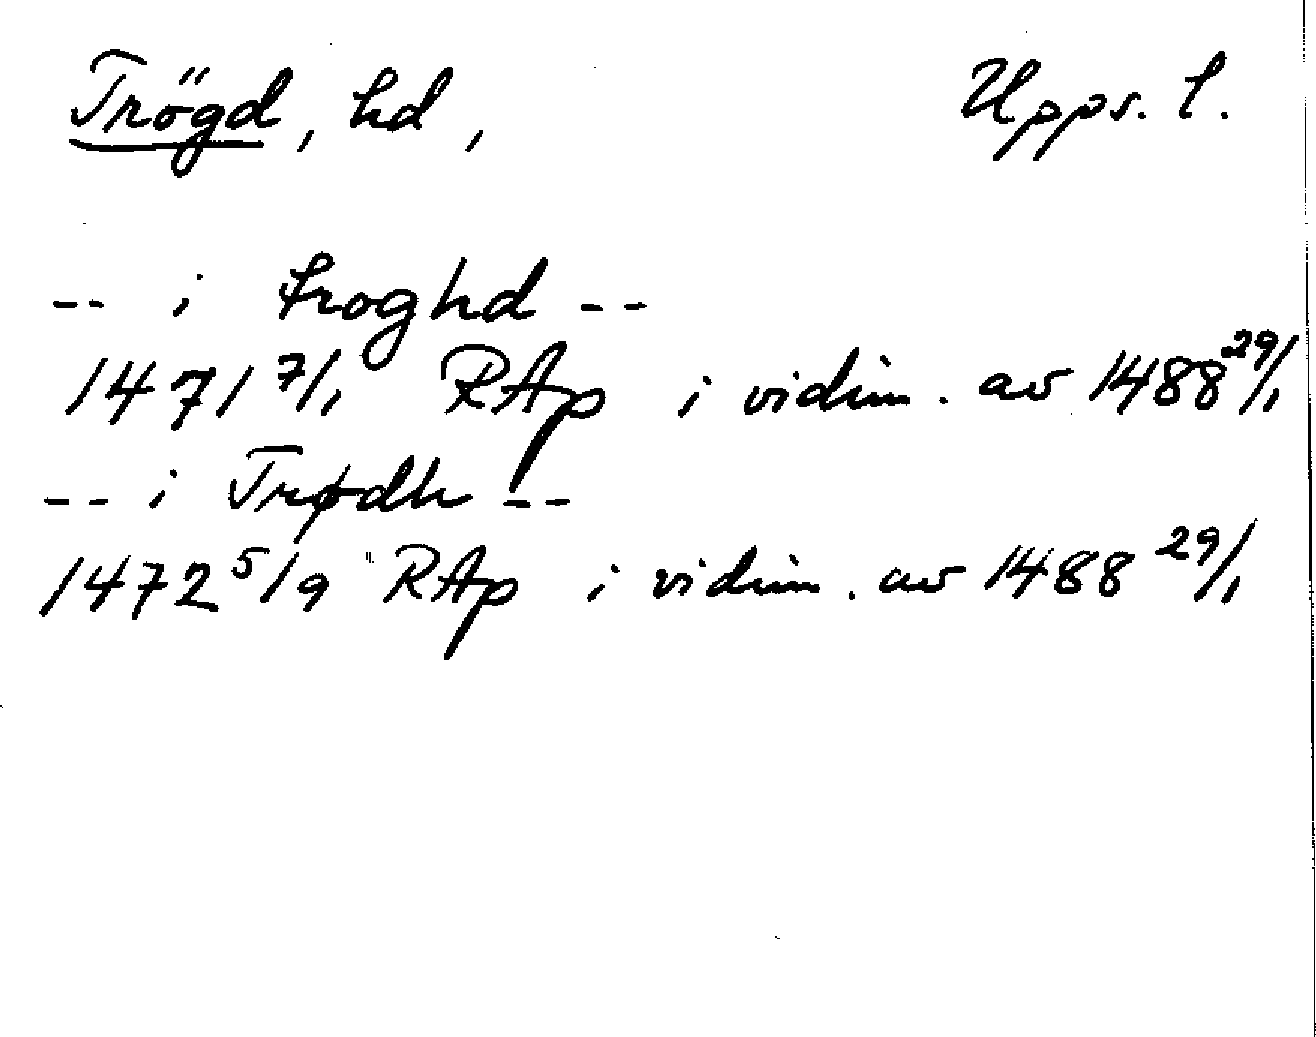 Trögd, hd, Upps. l.
-- i troghd --
1471 7/1 RAp i vidim. av 1488 29/1
-- i Trødh --
1472 5/9 RAp i vidim. av 1488 29/1